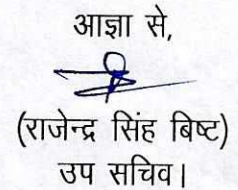 आज्ञा से,
(राजेन्द्र सिंह बिष्ट)
उप सचिव।